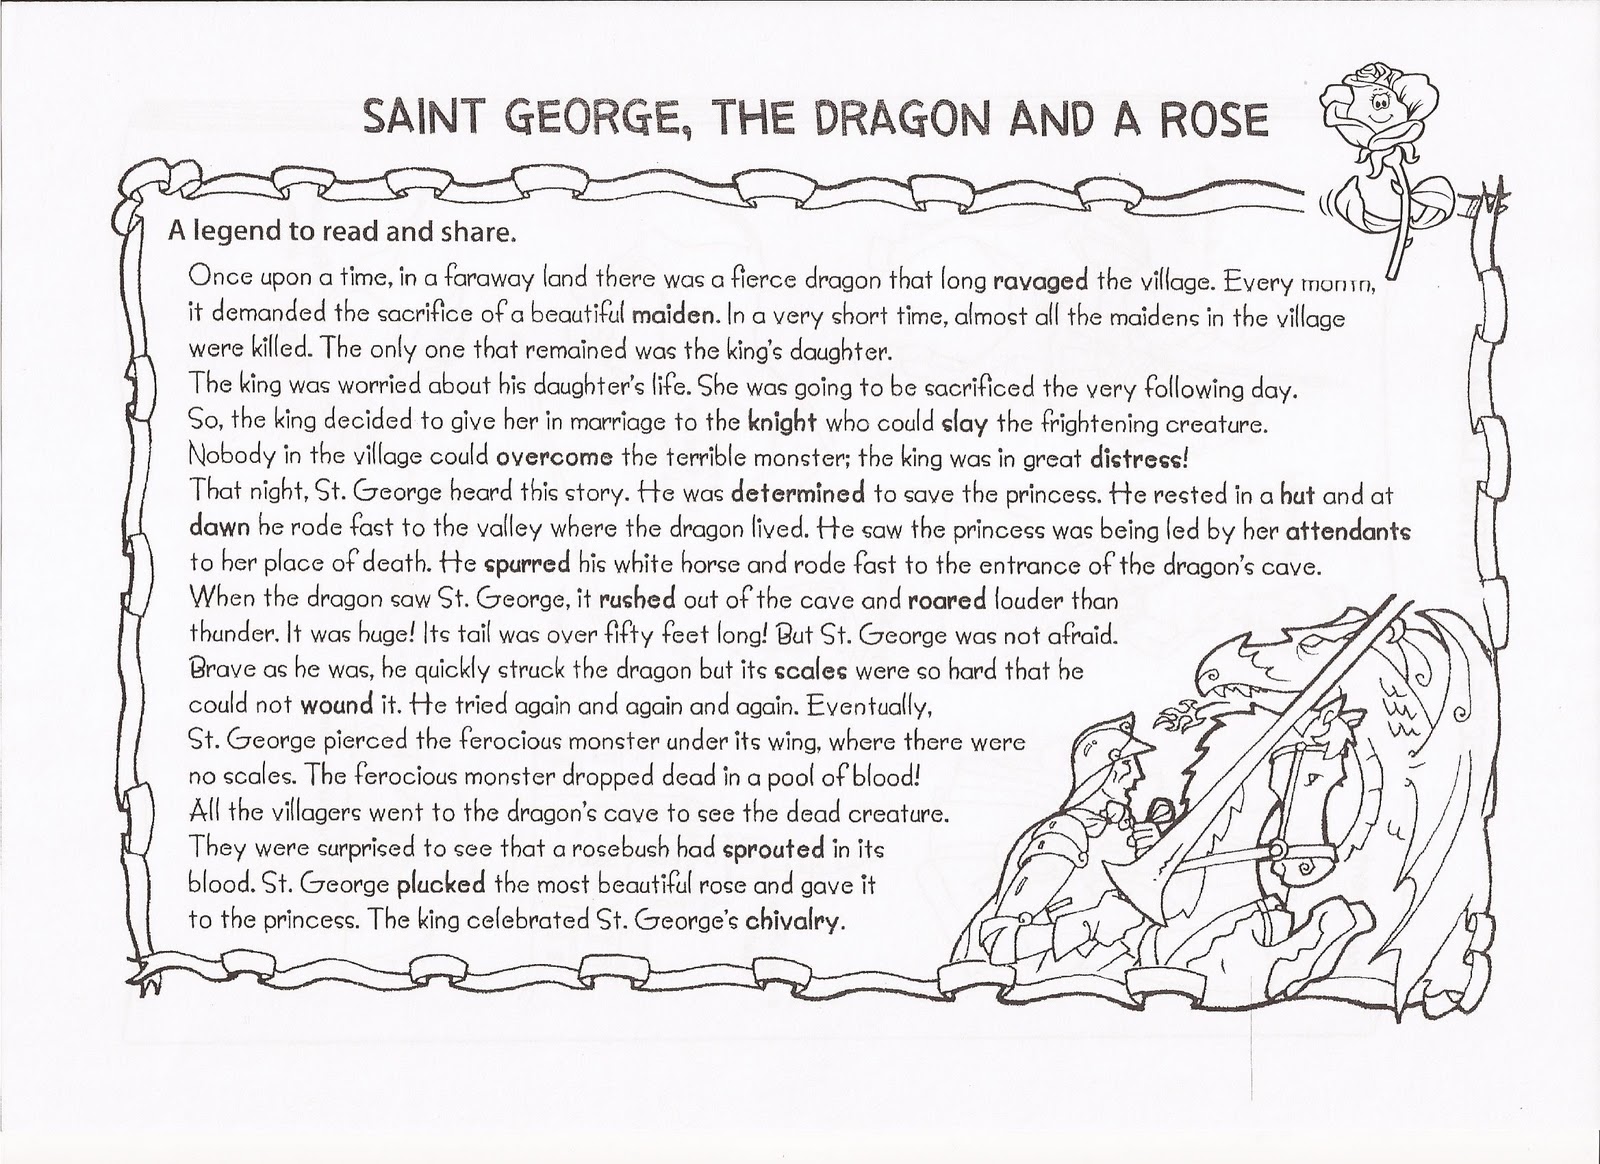 SAINT GEORGE, THE DRAGON AND A ROSE
A legend to read and share.
Once upon a time, in a faraway land there was a fierce dragon that long ravaged the village. Every month,
it demanded the sacrifice of a beautiful maiden. In a very short time, almost all the maidens in the village
were killed. The only one that remained was the king's daughter.
The king was worried about his daughter's life. She was going to be sacrificed the very following day.
So, the king decided to give her in marriage to the knight who could slay the frightening creature.
Nobody in the village could overcome the terrible monster; the king was in great distress!
That night, St. George heard this story. He was determined to save the princess. He rested in a hut and at
dawn he rode fast to the valley where the dragon lived. He saw the princess was being led by her attendants
to her place of death. He spurred his white horse and rode fast to the entrance of the dragon's cave.
When the dragon saw St. George, it rushed out of the cave and roared louder than
thunder. It was huge! Its tail was over fifty feet long! But St. George was not afraid.
Brave as he was, he quickly struck the dragon but its scales were so hard that he
could not wound it. He tried again and again and again. Eventually,
St. George pierced the ferocious monster under its wing, where there were
no scales. The ferocious monster dropped dead in a pool of blood!
All the villagers went to the dragon's cave to see the dead creature.
They were surprised to see that a rosebush had sprouted in its
blood. St. George plucked the most beautiful rose and gave it
to the princess. The king celebrated St. George's chivalry.